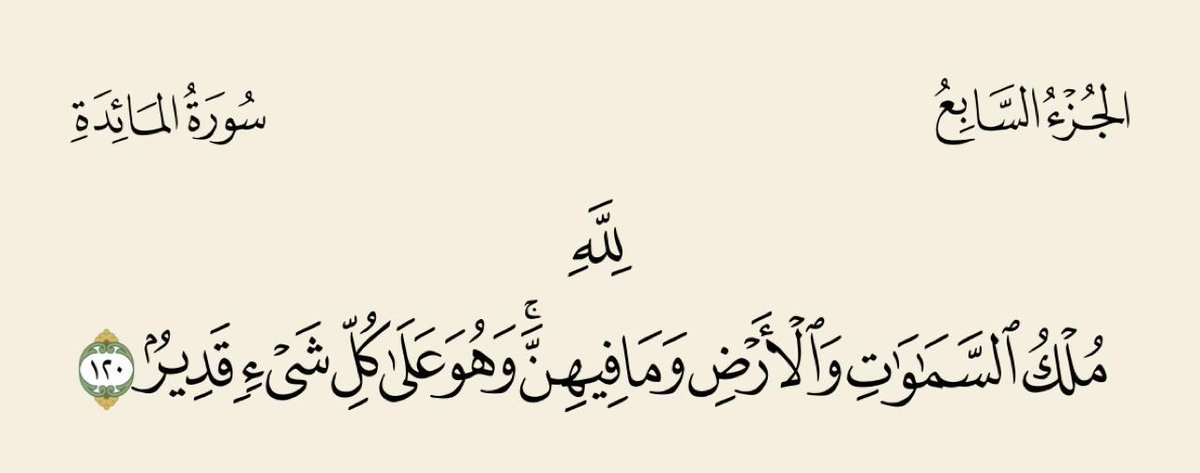 الجُزْءُ السَّابِعُ سُورَةُ المَائِدَةِ
لِلَّهِ
مُلۡكُ ٱلسَّمَٰوَٰتِ وَٱلۡأَرۡضِ وَمَا فِيهِنَّۚ وَهُوَ عَلَىٰ كُلِّ شَيۡءٖ قَدِيرُۢ ١٢٠